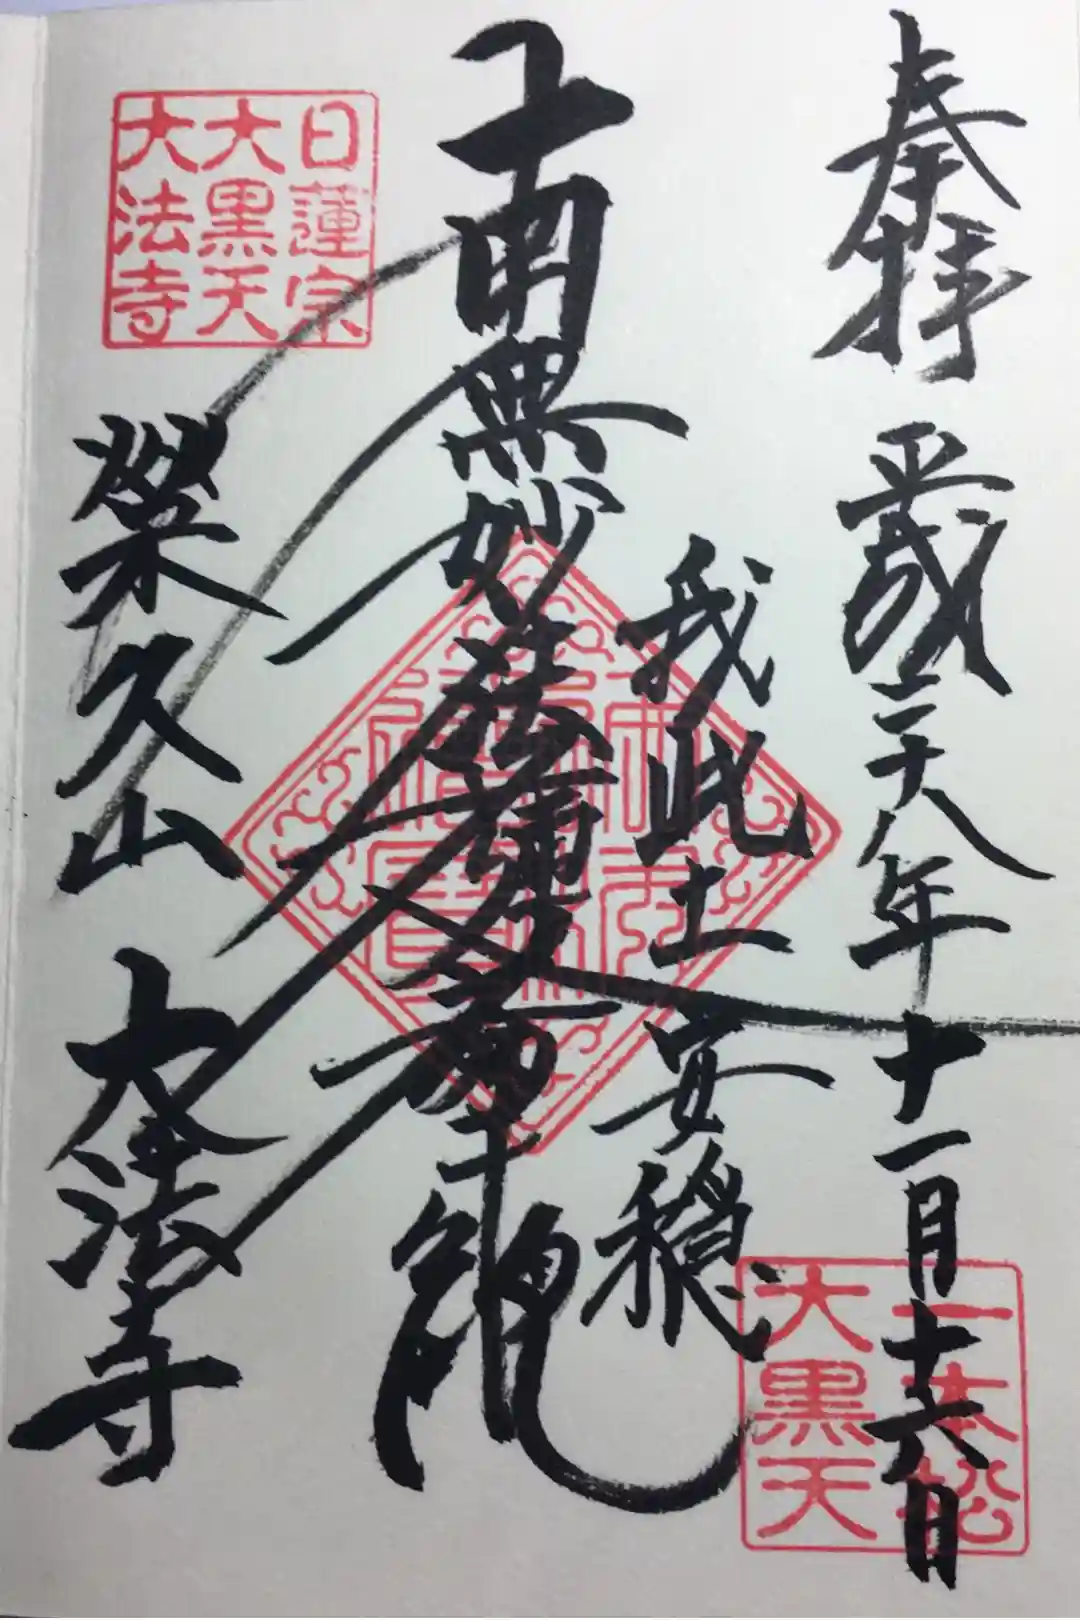 奉拝 平成二十八年十一月十六日
一本松
大黒天
我此土安穏
南無妙法蓮華經
日蓮宗
大黒天
大法寺
榮久山 大法寺